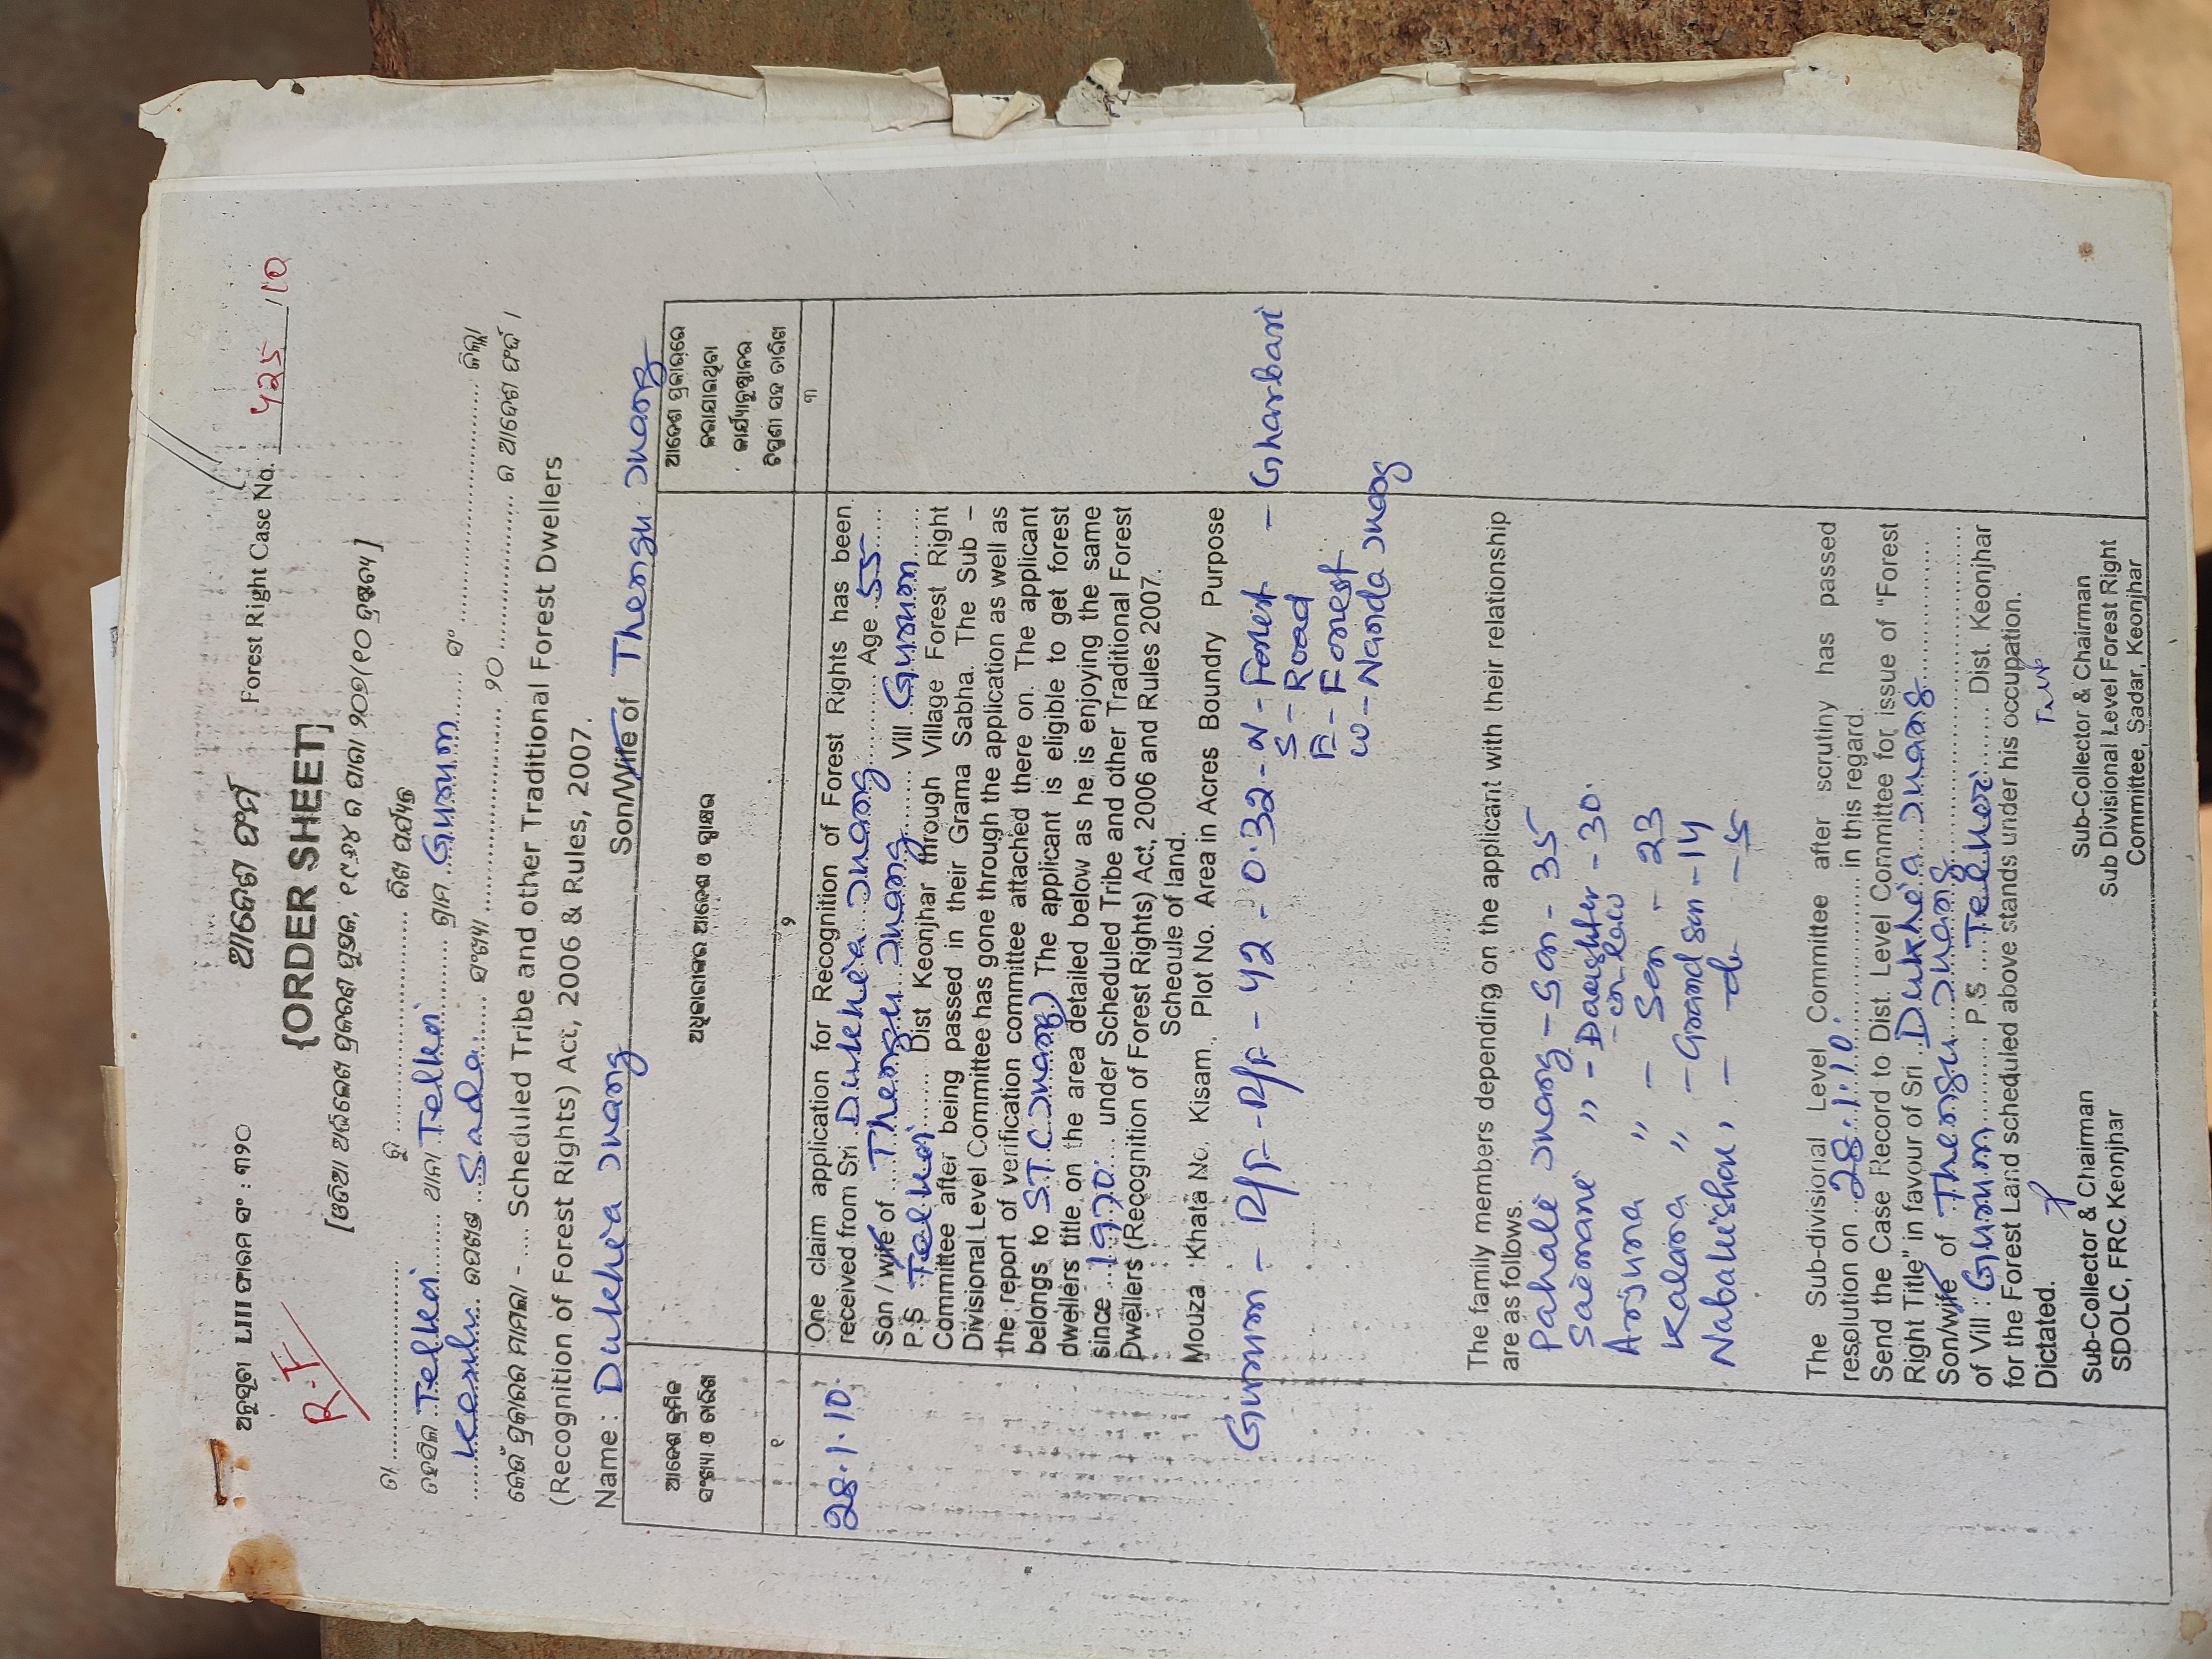 ଅନୁସୂଚୀ LIII ଫାରମ ସଂ : ୩୨୦
ଆଦେଶ ଫର୍ମ
Forest Right Case No. 425/10
R.F
{ORDER SHEET}
[ଓଡିଆ ଅଭିଲେଖ ପ୍ରକରଣ ପୁସ୍ତକ, ୧୯୬୪ ର ପାରା ୨୦୬/୧୦ ଦ୍ରଷ୍ଟବ୍ୟ]
ତା ........................ ରୁ ........................ ରିଖ ପର୍ଯ୍ୟନ୍ତ
ତହସିଲ Telkoi ........ ଥାନା Telkoi ........ ଗ୍ରାମ Gunum ........ ସଂ ........................ ଜିଲ୍ଲା
Kendu... ଉପଖଣ୍ଡ Sadar ..... ସଂଖ୍ୟା ........................ ୨୦ ........................ ର ଆଦେଶ ଫର୍ଦ୍ଦ ।
କେଉଁ ପ୍ରକାରର ମାମଲା - .... Scheduled Tribe and other Traditional Forest Dwellers
(Recognition of Forest Rights) Act, 2006 & Rules, 2007.
Name : Dukhia Juang Son/Wife of Thengu Juang
ଆଦେଶ କ୍ରମିକ ସଂଖ୍ୟା ଓ ତାରିଖ
ଅଧିକାରୀଙ୍କର ଆଦେଶ ଓ ସ୍ୱାକ୍ଷର
ଆଦେଶ ପ୍ରକାରରେ କରାଯାଇଥିବା କାର୍ଯ୍ୟାନୁଷ୍ଠାନର ଟିପ୍ପଣୀ ସହ ତାରିଖ
୧ ୨ ୩
28.1.10.
One claim application for Recognition of Forest Rights has been
received from Sri Dukhia Juang Age 55
Son / wife of Thengu Juang Vill Gunum
P.S Telkoi Dist Keonjhar through Village Forest Right
Committee after being passed in their Grama Sabha. The Sub –
Divisional Level Committee has gone through the application as well as
the report of verification committee attached there on. The applicant
belongs to ST (Juang) The applicant is eligible to get forest
dwellers title on the area detailed below as he is enjoying the same
since 1970 under Scheduled Tribe and other Traditional Forest
Dwellers (Recognition of Forest Rights) Act, 2006 and Rules 2007.
Schedule of land.
Mouza Khata No. Kisam, Plot No. Area in Acres Boundry Purpose
Gunum - R/F - R/F - 42 - 0.32 - N - Forest - Gharbari
S - Road
E - Forest
W - Nanda Juang
The family members depending on the applicant with their relationship
are as follows.
Pahali Juang - Son - 35
Saimani " - Daughter - 30.
in law
Arjuna " - Son - 23
Kalara " - Grand son - 14
Nabakishor, - do - 5
The Sub-divisional Level Committee after scrutiny has passed
resolution on 28.1.10. in this regard.
Send the Case Record to Dist. Level Committee for issue of "Forest
Right Title" in favour of Sri Dukhia Juang
Son/wife of Thengu Juang
of Vill : Gunum P.S Telkoi Dist. Keonjhar
for the Forest Land scheduled above stands under his occupation.
Dictated.
Sub-Collector & Chairman
SDOLC, FRC Keonjhar
Sub-Collector & Chairman
Sub Divisional Level Forest Right
Committee, Sadar, Keonjhar